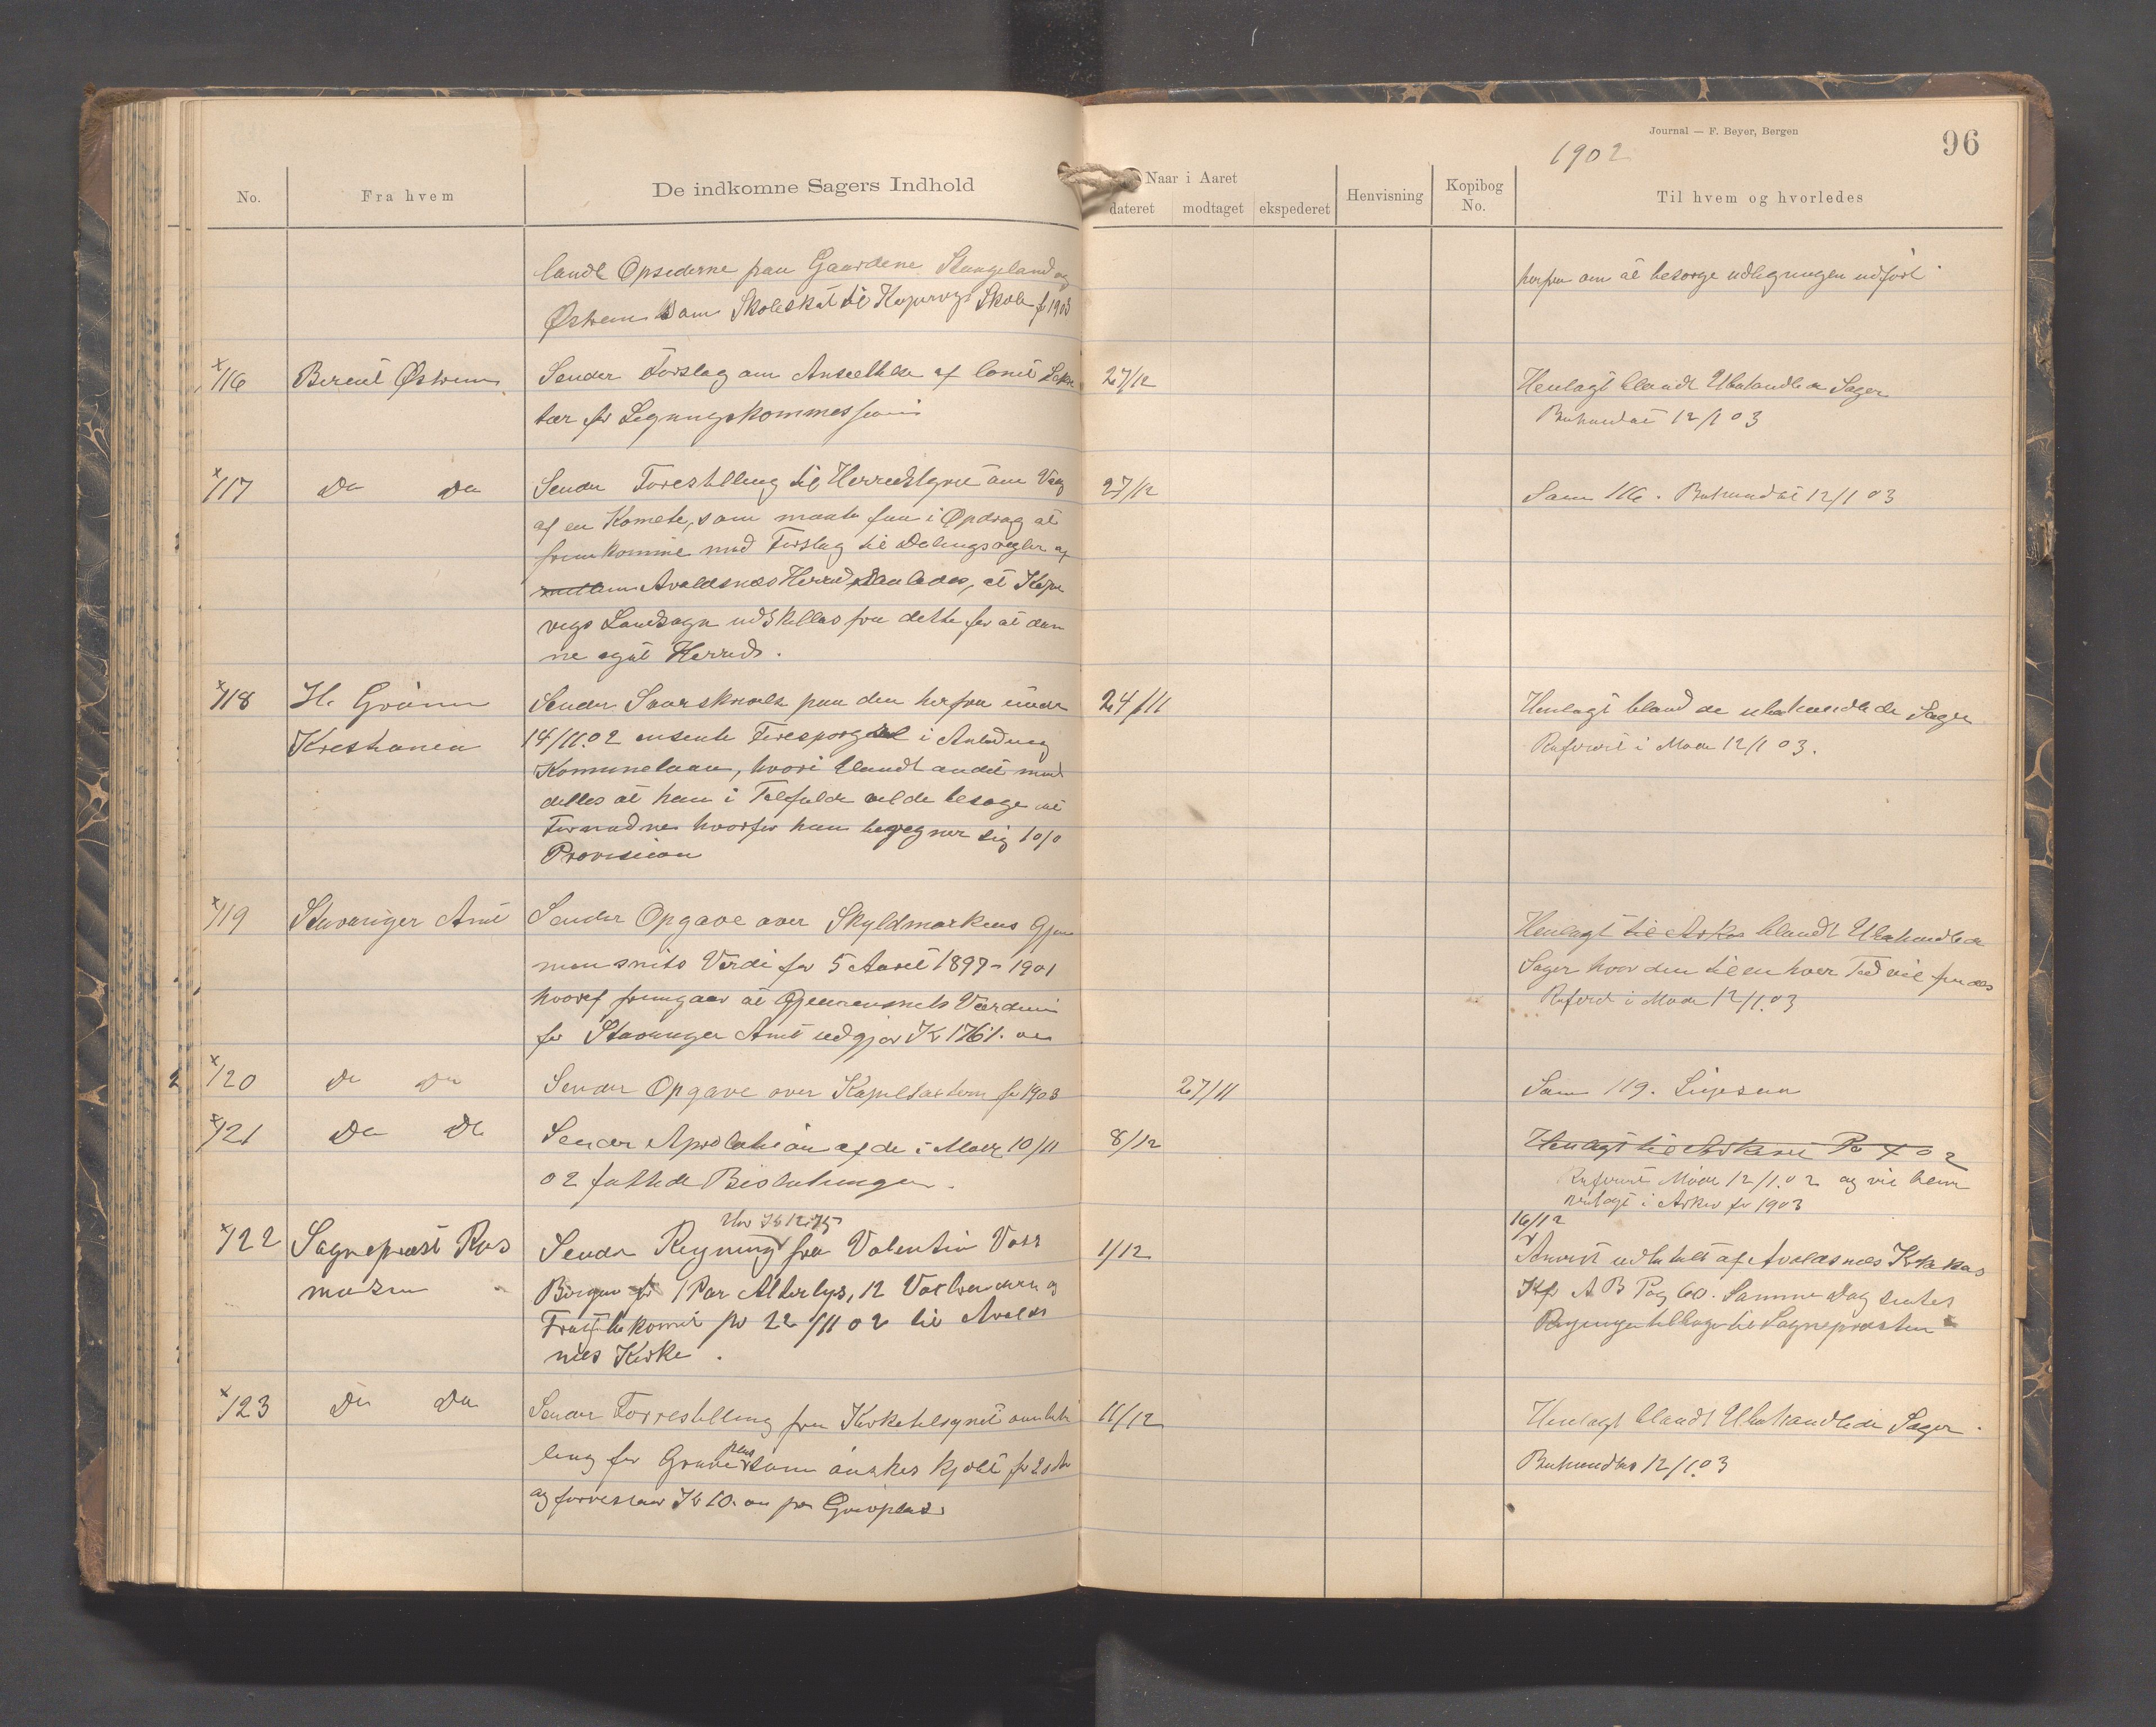 Journal — F. Beyer, Bergen
96
1902
No.
Fra hvem
De indkomne Sagers Indhold
Naar i Aaret
dateret
modtaget
ekspederet
Henvisning
Kopibog No.
Til hvem og hvorledes
landt Opsederne paa Gaardene Stangeland og
Østrem som Skoleskat til Kopervigs Skole for 1903
herfra om at besørge udligningen udført
116 Berent Østrem
Sender Forslag om Ansettelse af lønet Sekre
tær for Ligningskommessionen
27/12
Henlagt blandt Ubehandlede Sager
Behandlet 12/1 03
117 Do Do
Sender Forestilling til Herredstyret om Valg
af en Komete, som maatte faa i Opdrag at
fremkomme med Forslag til Delingsregler af
Avaldsnes Herred saaledes, at Koper
vigs Landsogn udskilles fra dette for at dan
ne eget Herred.
27/12
Som 116. Behandlet 12/1 03
118 H. Grönn
Krestiania
Sender Svarskrivelse paa den herfra under
14/11.02 Forespørgsel i Anledning
Kommunelaan, hvori blandt andet med
deles at han i Tilfælde vilde besøge
hvorfor han beregner sig 1 0/0
Provision
24/11
Henlagt bland de ubehandlede Sager
Referert i Møde 12/1 03.
119 Stavanger Amt
Sender Opgave over Skyldmarkens Gjen
nemsnits Verdi for 5 Aaret 1897-1901
hvoraf fremgaar at Gjennemsnits Værdien
for Stavanger Amt udgjør Kr 1761. oo
Henlagt til Arkiv blandt Ubehandlede
Sager hvor den til en hver Tid vil findes
Referert i Møde 12/1.03
120 Do Do
Sender Opgave over Kapeltaxtern for 1903
27/11
Som 119.
121 Do Do
Sender Aprobation af de i Møde 10/11
02 fattede Beslutninger.
8/12
Henlagt til Arkivet
Referert Møde 12/1.02 og vil blive
henlagt i Arkiv for 1903
122 Sogneprest Ras
mussen
Sender Regning fra Valentin Voss
Bergen for 1 Par Alterlys, 12 og
Fragt bekomet pr 22/11 02 til Avalds
nes Kirke.
1/12
16/12
Anvist udbetalt af Avaldsnes Kirkekas
Kfr A B Pag 60. Samme Dag sendes
Regningen tilbage til Sognepresten
123 Do Do
Sender Forrestilling fra Kirketilsynet om beta
ling for Grave som ønskes kjøbt for 20 Aar
og forreslaar Kr 10. oo per Gravplads
11/12
Henlagt blandt Ubehandlede Sager.
Behandles 12/1.03